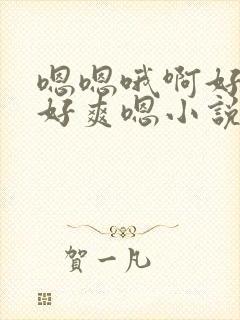 嗯嗯哦啊好
好爽嗯小說
賀一凡